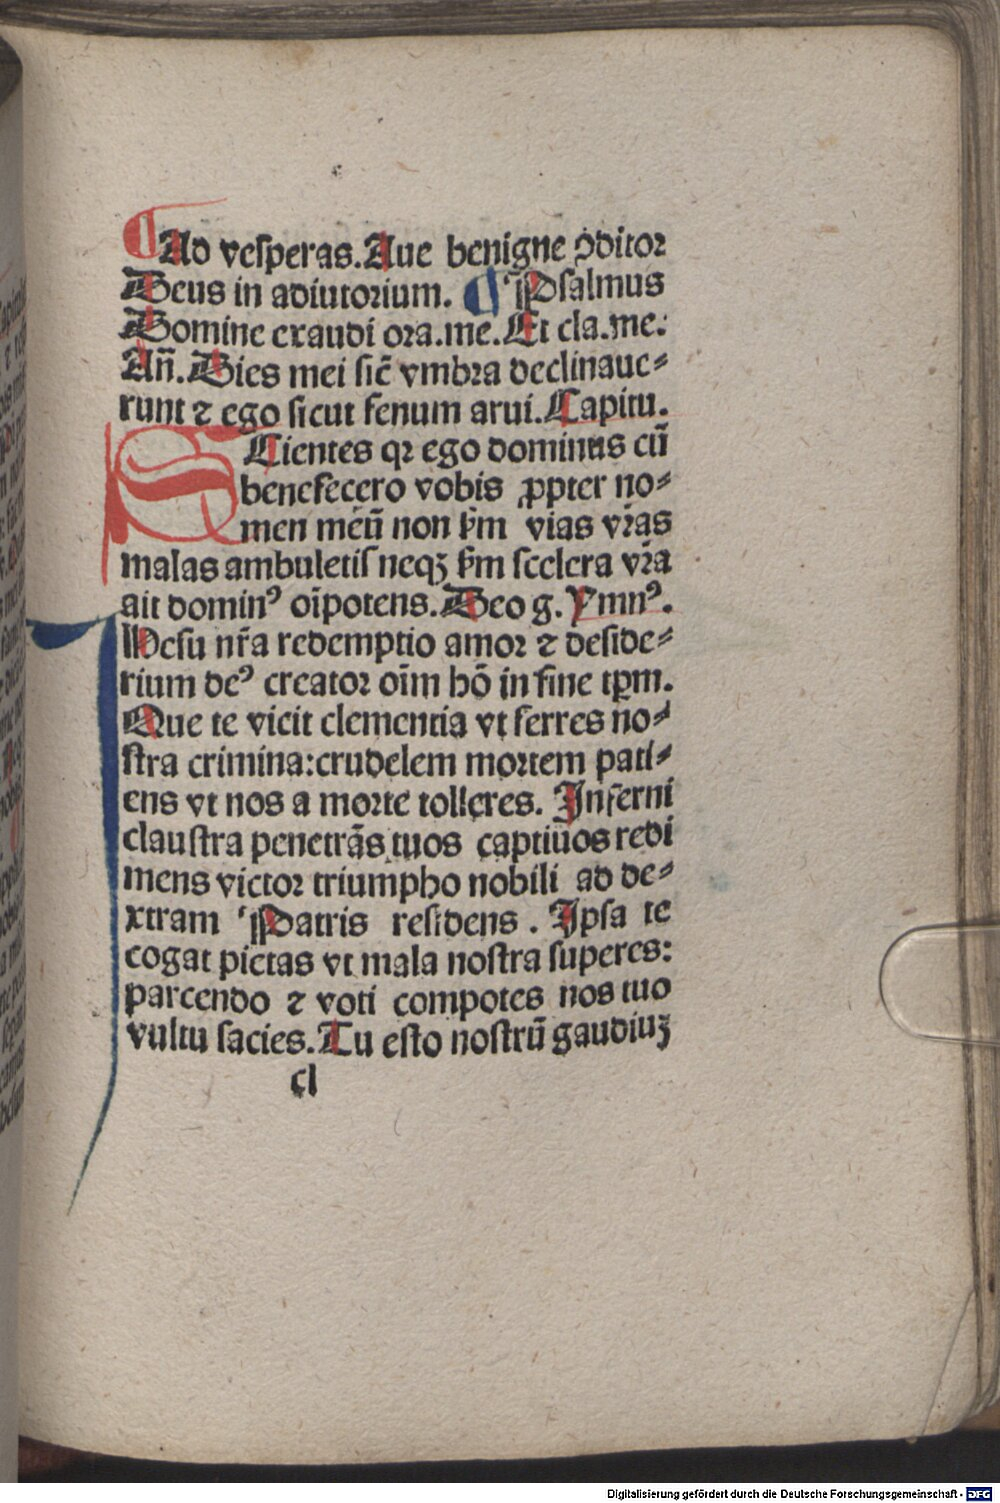 ¶Ad vesperas. Aue benigne ꝯditor
Deus in adiutorium. ¶ Psalmus
Domine exaudi ora.me. Et cla.me:
An̄. Dies mei sic̄ vmbra declinaue⸗
runt ⁊ ego sicut fenum arui. Capitu.
SCientes qꝛ ego dominus cū
benefecero vobis ꝓpter no⸗
men meū non ẜm vias vr̄as
malas ambuletis neqꝫ ẜm scelera vr̄a
ait dominꝰ oīpotens. Deo g. Ymnꝰ.
IHesu nr̄a redemptio amor ⁊ deside⸗
rium deꝰ creator oīm hō in fine tꝑm.
Que te vicit clementia vt ferres no⸗
stra crimina: crudelem mortem pati⸗
ens vt nos a morte tolleres. Inferni
claustra penetrās tuos captiuos redi
mens victor triumpho nobili ad de⸗
xtram Patris residens. Ipsa te
cogat pietas vt mala nostra superes:
parcendo ⁊ voti compotes nos tuo
vultu sacies. Tu esto nostrū gaudiuꝫ
cl
Digitalisierung gefördert durch die Deutsche Forschungsgemeinschaft - DFG